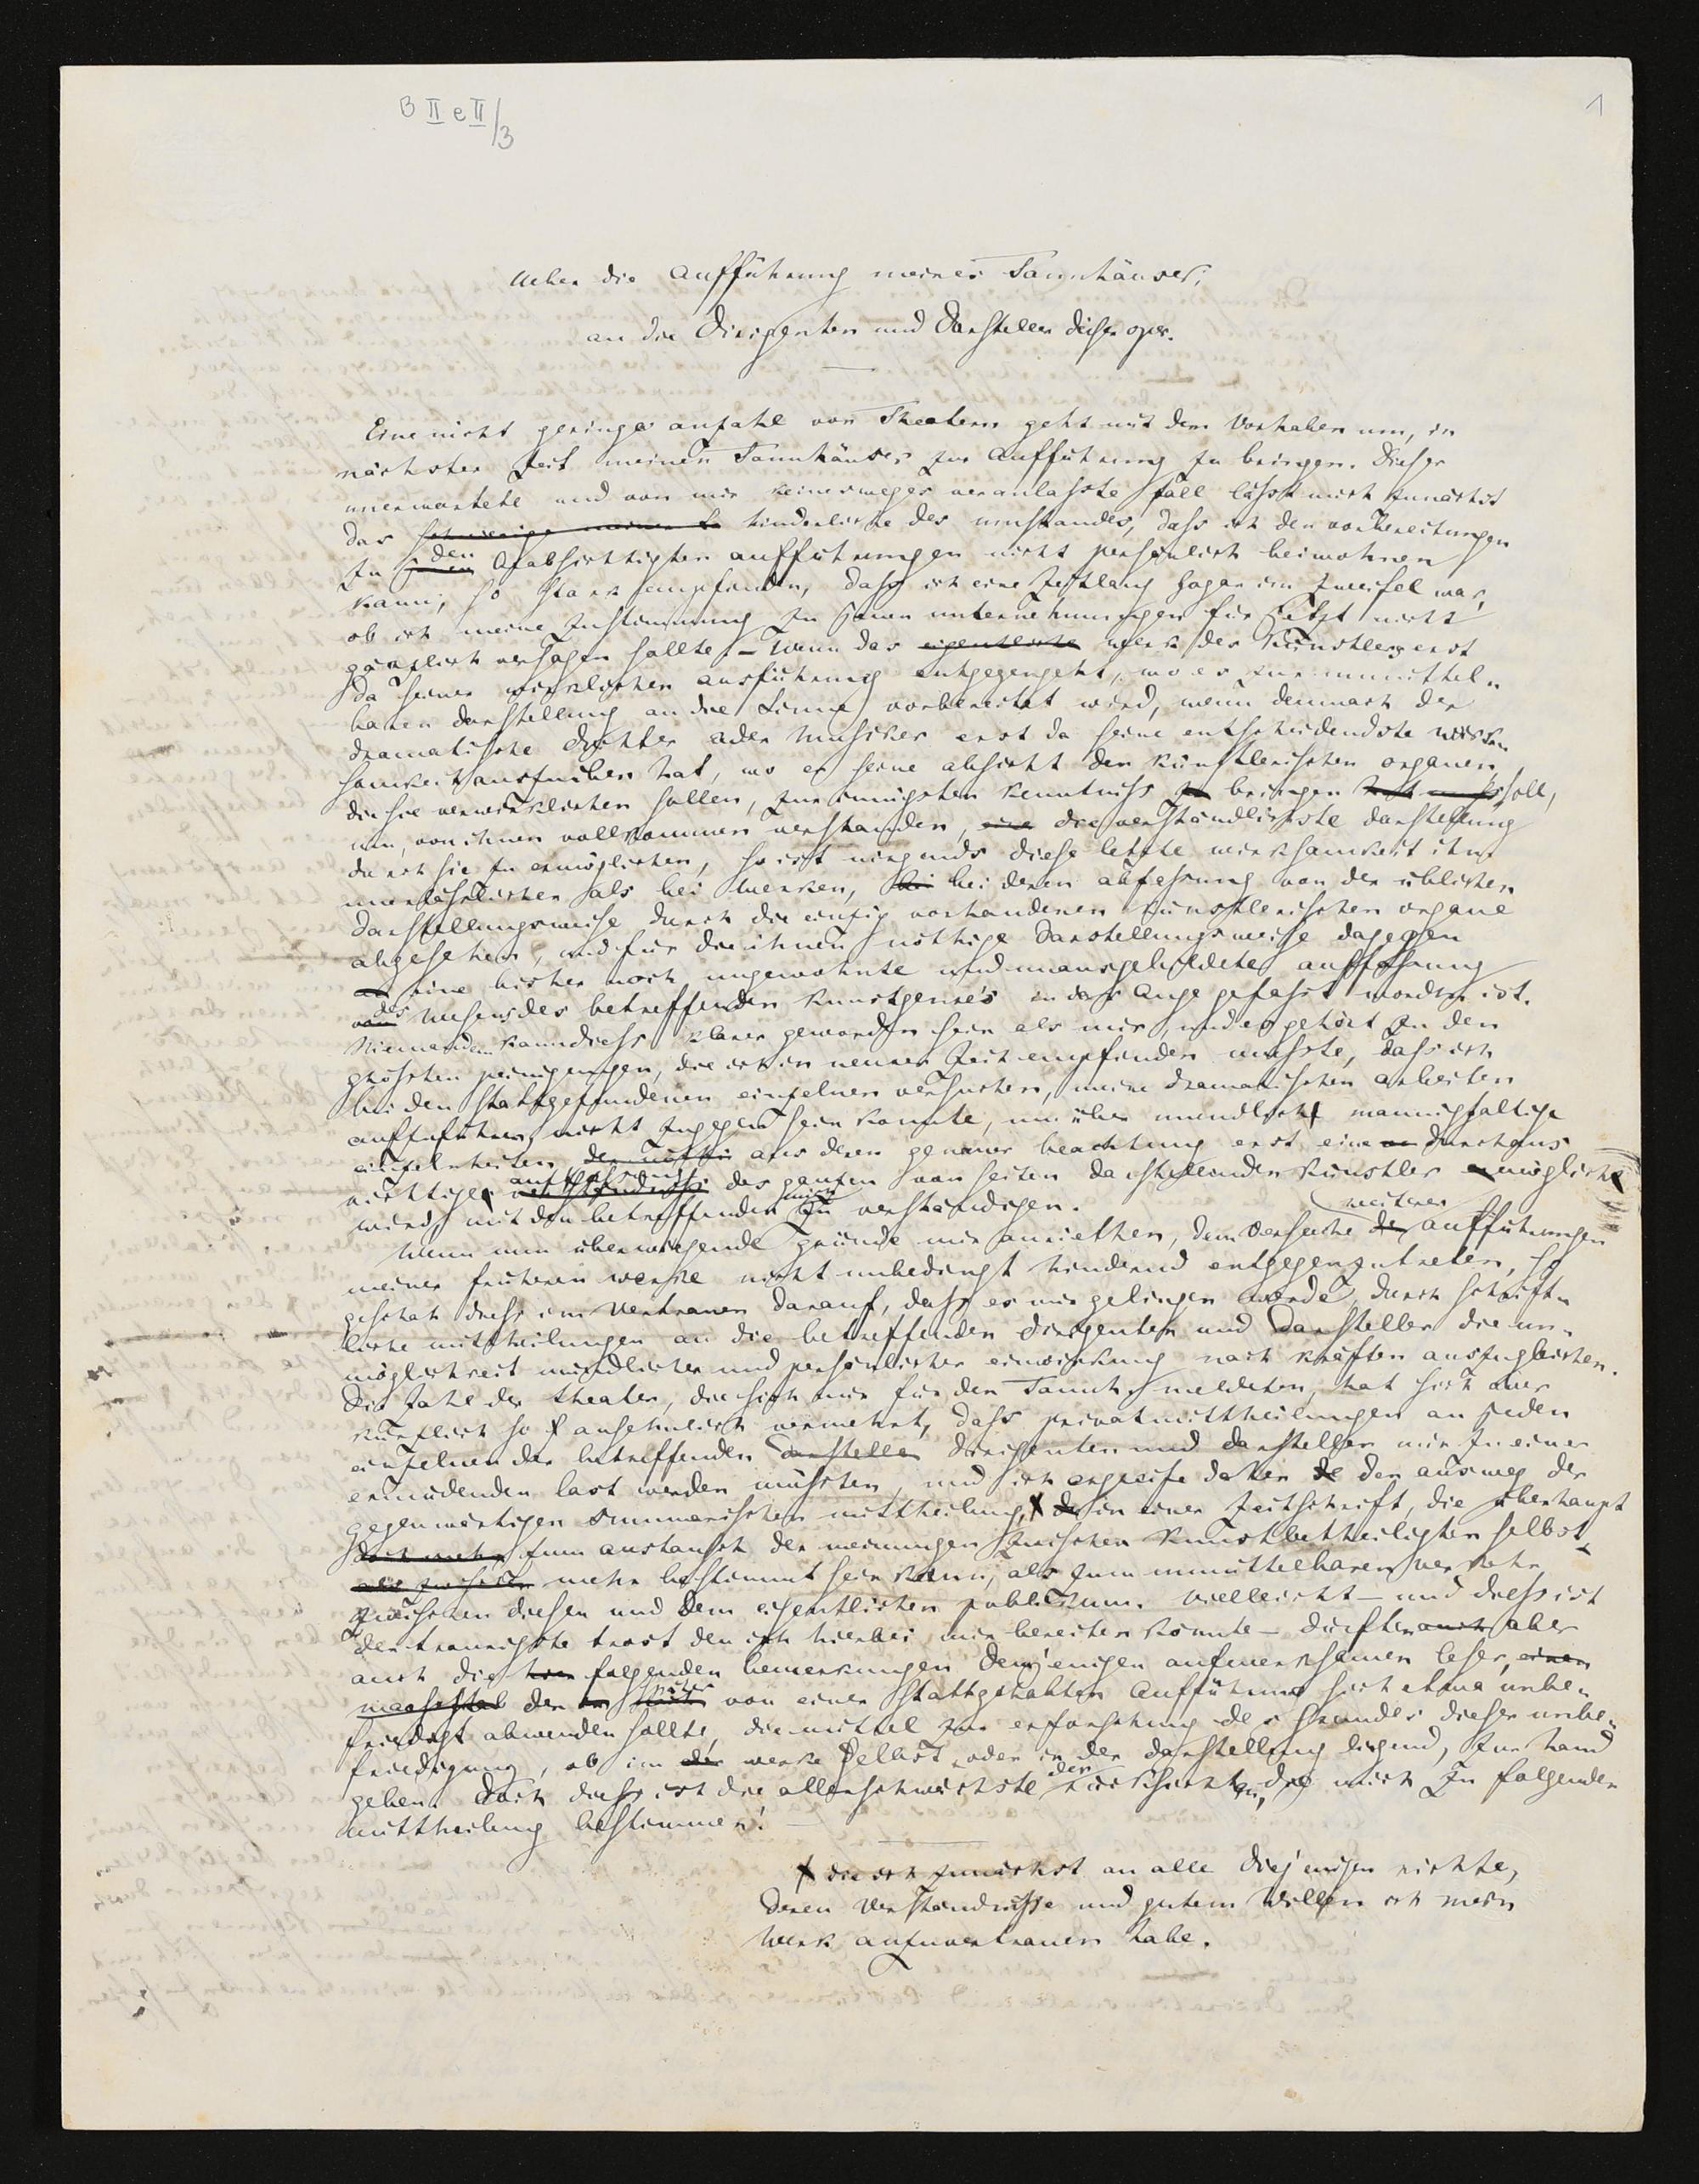 B II e II/3
1
Ueber die Aufführung meines Tannhäuser;
an die Dirigenten und Darsteller dieser oper.
Eine nicht geringe anzahl von Theatern geht mit dem Vorhaben um, in
nächster Zeit meinen Tannhäuser zur Aufführung zu bringen. Dieser
unerwartete und von mir keinesweges veranlasste fall lässt mich zunächst
das hinderliche des umstandes, dass ich den vorbereitungen
zu den beabsichtigten aufführungen nicht persönlich beiwohnen
kann, so stark empfinden, dass ich eine Zeitlang sogar im Zweifel war,
ob ich meine Zustimmung zu jenen unternehmungen für jetzt nicht
gänzlich versagen sollte. – Wenn das eigentliche werk des Künstlers erst
da seiner wirklichen ausführung entgegengeht, wo es zur unmittel-
baren darstellung an die Sinne vorbereitet wird, wenn demnach der
dramatische dichter oder Musiker erst da seine entscheidendste wirk-
samkeit auszuüben hat, wo er seine absicht den künstlerischen organen,
die sie verwirklichen sollen, zur innigsten kenntniss zu bringen soll,
um, von ihnen vollkommen verstanden, eine die verständlichste darstellung
durch sie zu ermöglichen, so ist nirgends diese letzte wirksamkeit ihm
unerlässlicher als bei werken, bei bei deren abfassung von der üblichen
darstellungsweise durch die einzig vorhandenen künstlerischen organe
abgesehen, und für die ihnen nöthige darstellungsweise dagegen
eine bisher noch ungewohnte und unausgebildete auffassung
des Wesens des betreffenden Kunstgenre's in das Auge gefasst worden ist.
Niemandem kann diess klarer geworden sein als mir, und es gehört zu den
grössten peinigungen, die ich in neuerer Zeit empfinden musste, dass ich
bei den stattgefundenen einzelnen versuchen, meine dramatischen arbeiten
aufzuführen, nicht zugegen sein konnte, um über mündlich mannigfaltige
einzelnheiten, aus deren genauer beachtung erst eine durchaus
richtige auffassung des ganzen von seiten darstellender künstler möglich
wird, mit den betreffenden mich zu verständigen.
Wenn nun überwiegende gründe mir anriethen, dem Versuche weiterer aufführungen
meiner früheren werke nicht unbedingt hindernd entgegenzutreten, so
geschah diess im Vertrauen darauf, dass es mir gelingen werde, durch schrift-
liche mittheilungen an die betreffenden dirigenten und Darsteller die un-
möglichkeit mündlicher und persönlicher einwirkung nach kräften auszugleichen.
Die Zahl der theater, die sich mir für den Tannh. meldeten, hat sich aber
kürzlich so ansehnlich vermehrt, dass privatmittheilungen an jeden
einzelnen der betreffenden darsteller dirigenten und darsteller mir zu einer
ermüdenden last werden müssten, und ich ergreife daher den ausweg der
gegenwärtigen summarischen mittheilung, in einer Zeitschrift, die überhaupt
zum austausch der meinungen zwischen Kunstbetheiligten selbst
mehr bestimmt sein kann, als zum unmittelbaren verkehr
zwischen diesen und dem eigentlichen publikum. Vielleicht – und diess ist
der traurigste trost den ich hierbei mir bereiten könnte – dürften auch aber
auch die folgenden bemerkungen demjenigen aufmerksamen leser, einen
maassstab der später von einer stattgehabten Aufführung sich etwa unbe-
friedigt abwenden sollte, die mittel zur erforschung des grundes dieser unbe-
friedigung, ob im werke selbst oder in der darstellung liegend, zur hand
geben. Doch diess ist die allerschwächste der Rücksichten, die mich zu folgender
mittheilung bestimmen! –
die ich zunächst an alle diejenigen richte,
deren Verständnisse und gutem Willen ich mein
Werk anzuvertrauen habe.